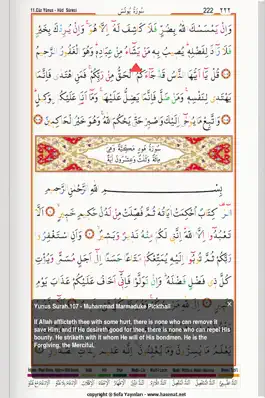 11.Cüz Yûnus - Hûd Sûresi
سورة يونس
222 ٢٢٢
وَإِنْ يَمْسَسْكَ اللَّهُ بِضُرٍّ فَلَا كَاشِفَ لَهُ إِلَّا هُوَ وَإِنْ يُرِدْكَ بِخَيْرٍ
فَلَا رَادَّ لِفَضْلِهِ يُصِيبُ بِهِ مَنْ يَشَاءُ مِنْ عِبَادِهِ وَهُوَ الْغَفُورُ الرَّحِيمُ
قُلْ يَا أَيُّهَا النَّاسُ قَدْ جَاءَكُمُ الْحَقُّ مِنْ رَبِّكُمْ فَمَنِ اهْتَدَى فَإِنَّمَا
يَهْتَدِي لِنَفْسِهِ وَمَنْ ضَلَّ فَإِنَّمَا يَضِلُّ عَلَيْهَا وَمَا أَنَا عَلَيْكُمْ بِوَكِيلٍ
وَاتَّبِعْ مَا يُوحَى إِلَيْكَ وَاصْبِرْ حَتَّى يَحْكُمَ اللَّهُ وَهُوَ خَيْرُ الْحَاكِمِينَ
سورة هود مكية وهي
مائة وثلث وعشرون آية
بِسْمِ اللَّهِ الرَّحْمَنِ الرَّحِيمِ
الر كِتَابٌ أُحْكِمَتْ آيَاتُهُ ثُمَّ فُصِّلَتْ مِنْ لَدُنْ حَكِيمٍ خَبِيرٍ أَلَّا
تَعْبُدُوا إِلَّا اللَّهَ إِنَّنِي لَكُمْ مِنْهُ نَذِيرٌ وَبَشِيرٌ وَأَنِ اسْتَغْفِرُوا
رَبَّكُمْ ثُمَّ تُوبُوا إِلَيْهِ يُمَتِّعْكُمْ مَتَاعًا حَسَنًا إِلَى أَجَلٍ مُسَمًّى وَيُؤْتِ
كُلَّ ذِي فَضْلٍ فَضْلَهُ وَإِنْ تَوَلَّوْا فَإِنِّي أَخَافُ عَلَيْكُمْ عَذَابَ يَوْمٍ
Yunus Surah.107 - Muhammad Marmaduke Pickthall
If Allah afflicteth thee with some hurt, there is none who can remove it
save Him; and if He desireth good for thee, there is none who can repel His
bounty. He striketh with it whom He will of His bondmen. He is the
Forgiving, the Merciful.
copyright @ Sefa Yayınları - www.hasenat.net